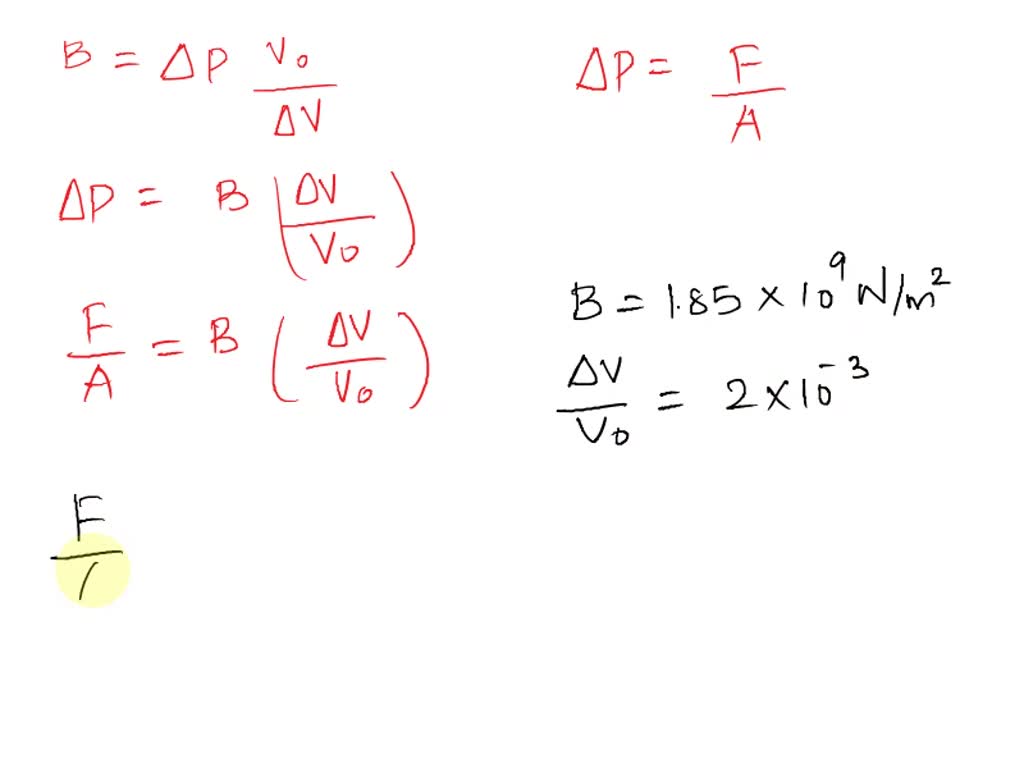 B = ΔP V₀/ΔV
ΔP = F/A
ΔP = B (ΔV/V₀)
F/A = B (ΔV/V₀)
B = 1.85 × 10⁹ N/m²
ΔV/V₀ = 2 × 10⁻³
F/